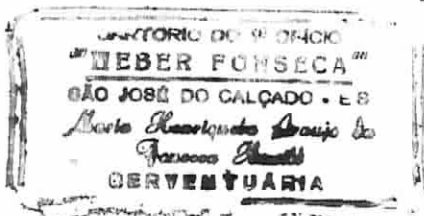 CARTORIO DO 1º OFICIO
"WEBER FONSECA"
SÃO JOSÉ DO CALÇADO - ES
Maria Henriqueta Araujo da
Fonseca
SERVENTUÁRIA